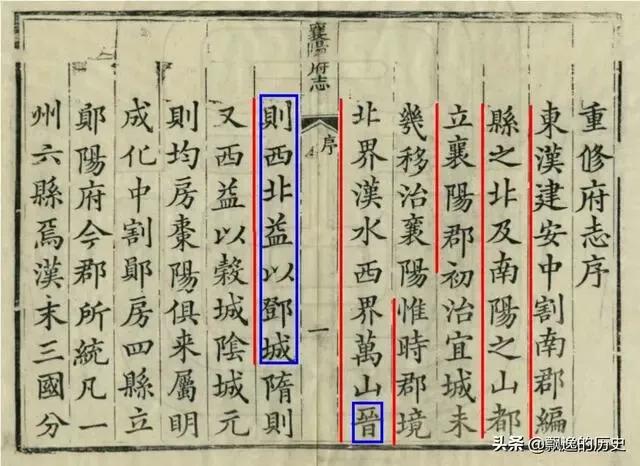 重修府志序
東漢建安中割南郡編
縣之北及南陽之山都
立襄陽郡初治宜城未
幾移治襄陽惟時郡境
北界漢水西界萬山晉
襄陽府志
序
一
則西北益以鄧城隋則
又西益以穀城陰城元
則均房棗陽俱来屬明
成化中割鄖房四縣立
鄖陽府今郡所統凡一
州六縣焉漢末三國分
头条 @飘逸的历史